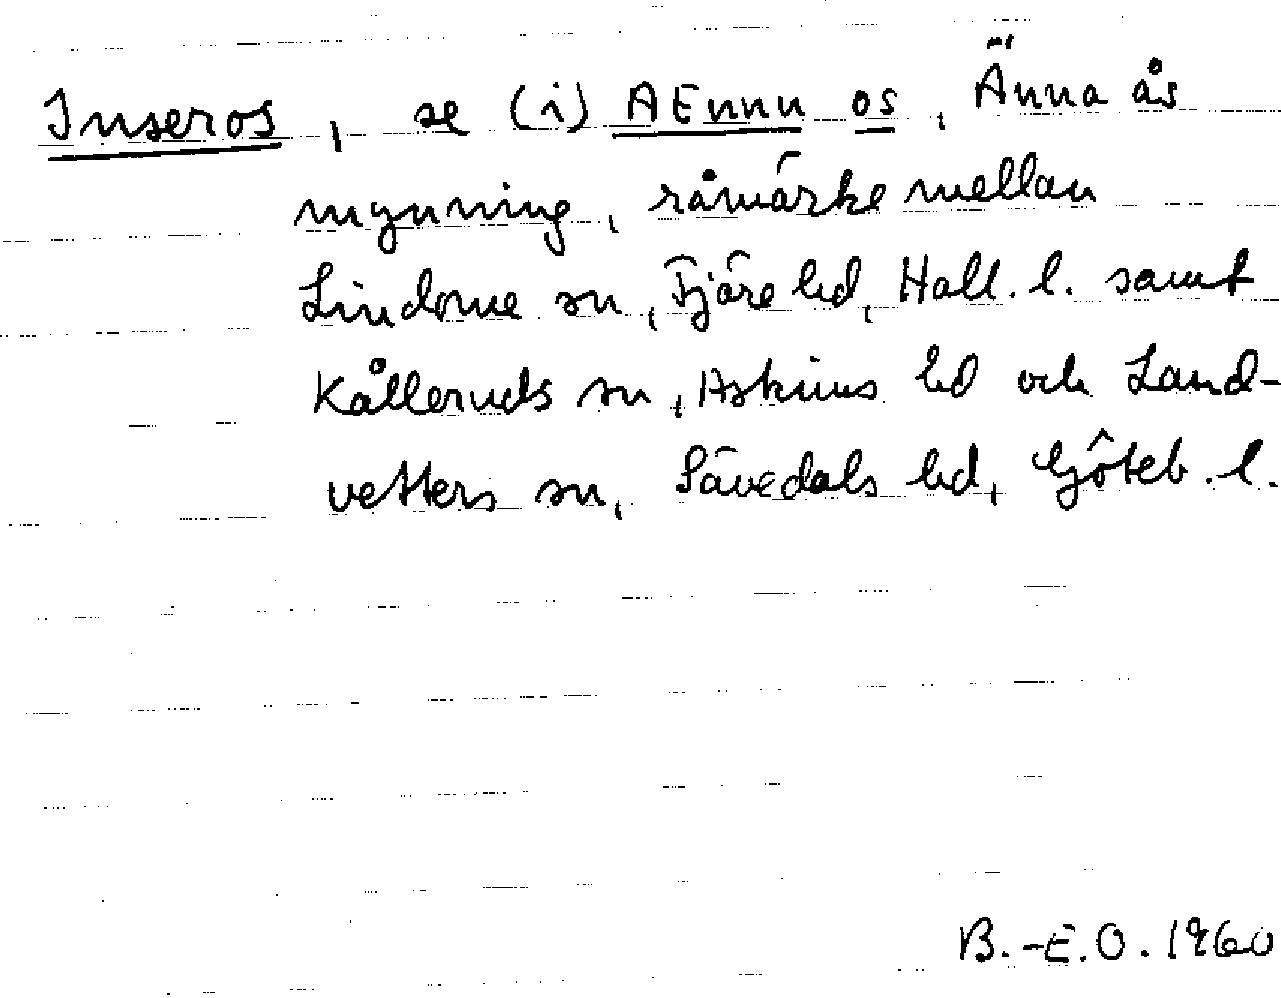 Inseros, se (i) AEnnu os, Änna ås
mynning, råmärke mellan
Lindome sn, Fjäre hd, Hall. l. samt
Kålleruds sn, Askims hd och Land-
vetters sn, Sävedals hd, Göteb. l.
B.-E.O. 1960